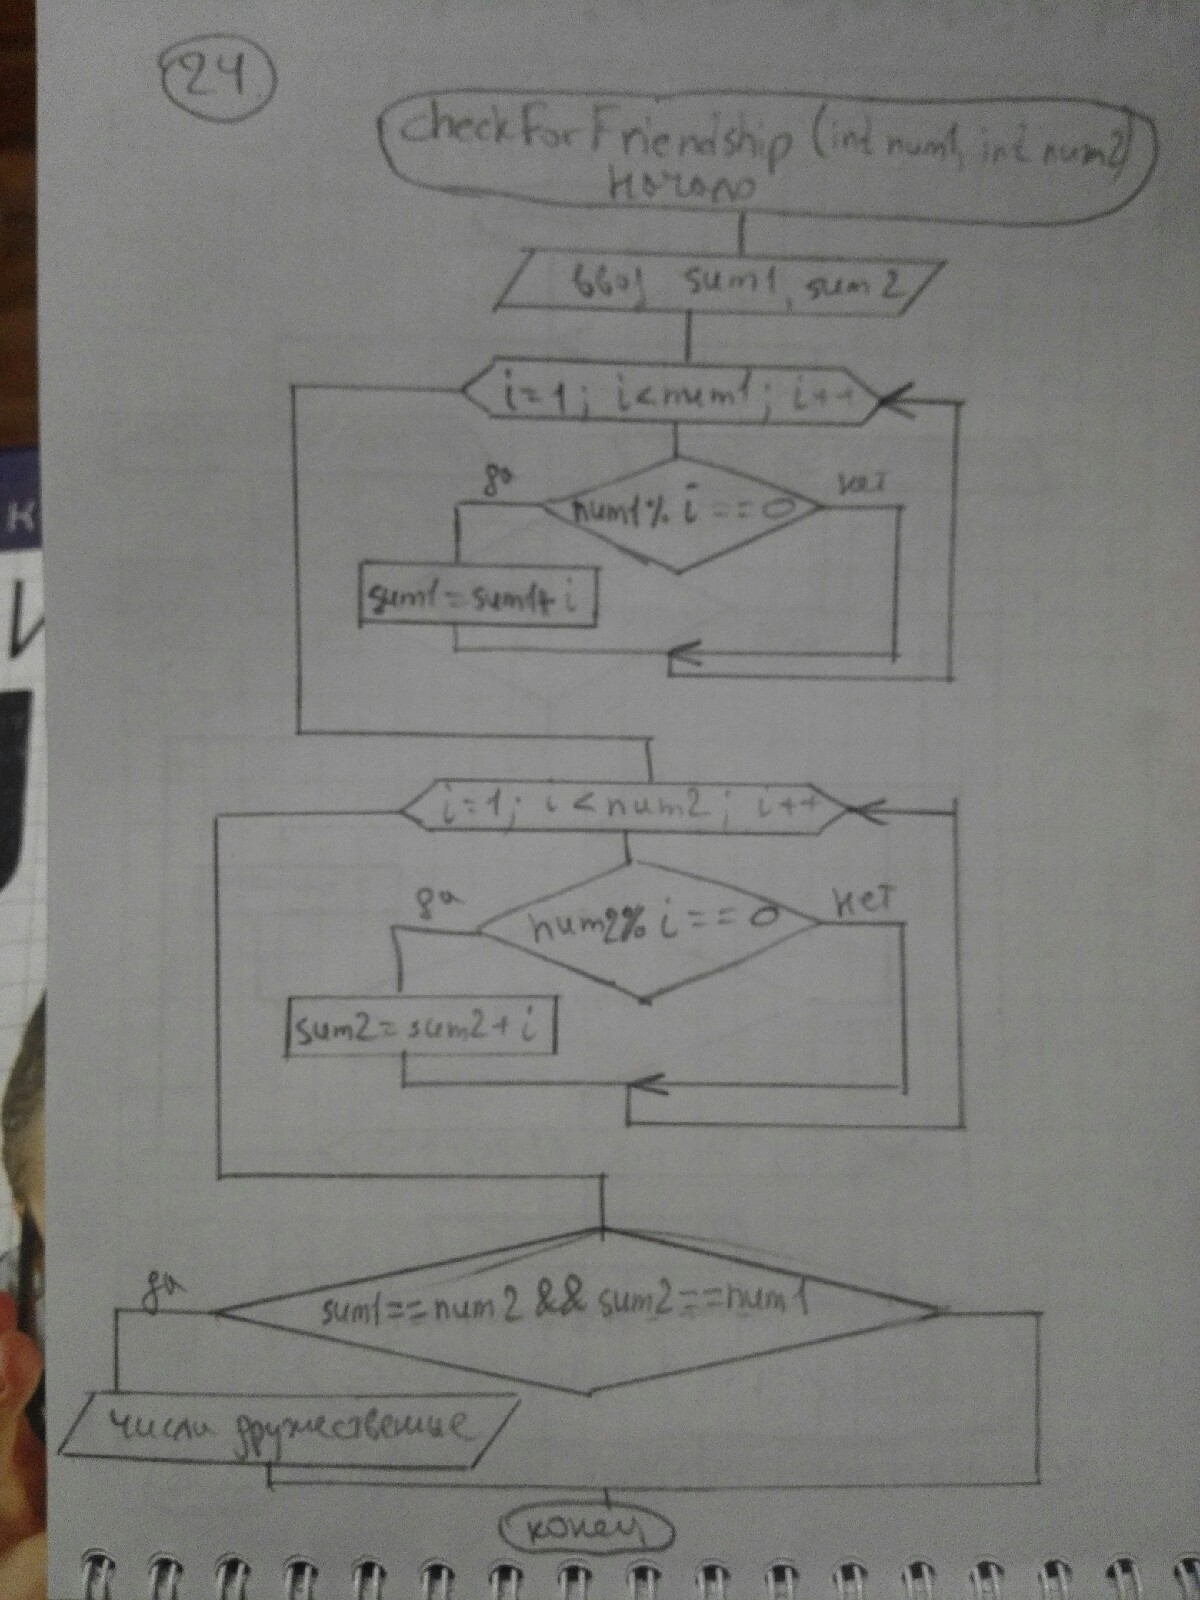 24
checkForFriendship (int num1, int num2)
начало
ввод sum1, sum2
i=1; i<num1; i++
да
нет
num1% i ==0
sum1=sum1+i
i=1; i<num2; i++
да
нет
num2% i ==0
sum2=sum2+i
да
sum1==num2 && sum2==num1
числа дружественные
конец
К
И